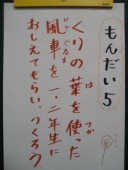 もんだい5
くりの葉を使った
は つか
風車を一、二年生に
かざぐるま
おしえてもらい、つくろう。